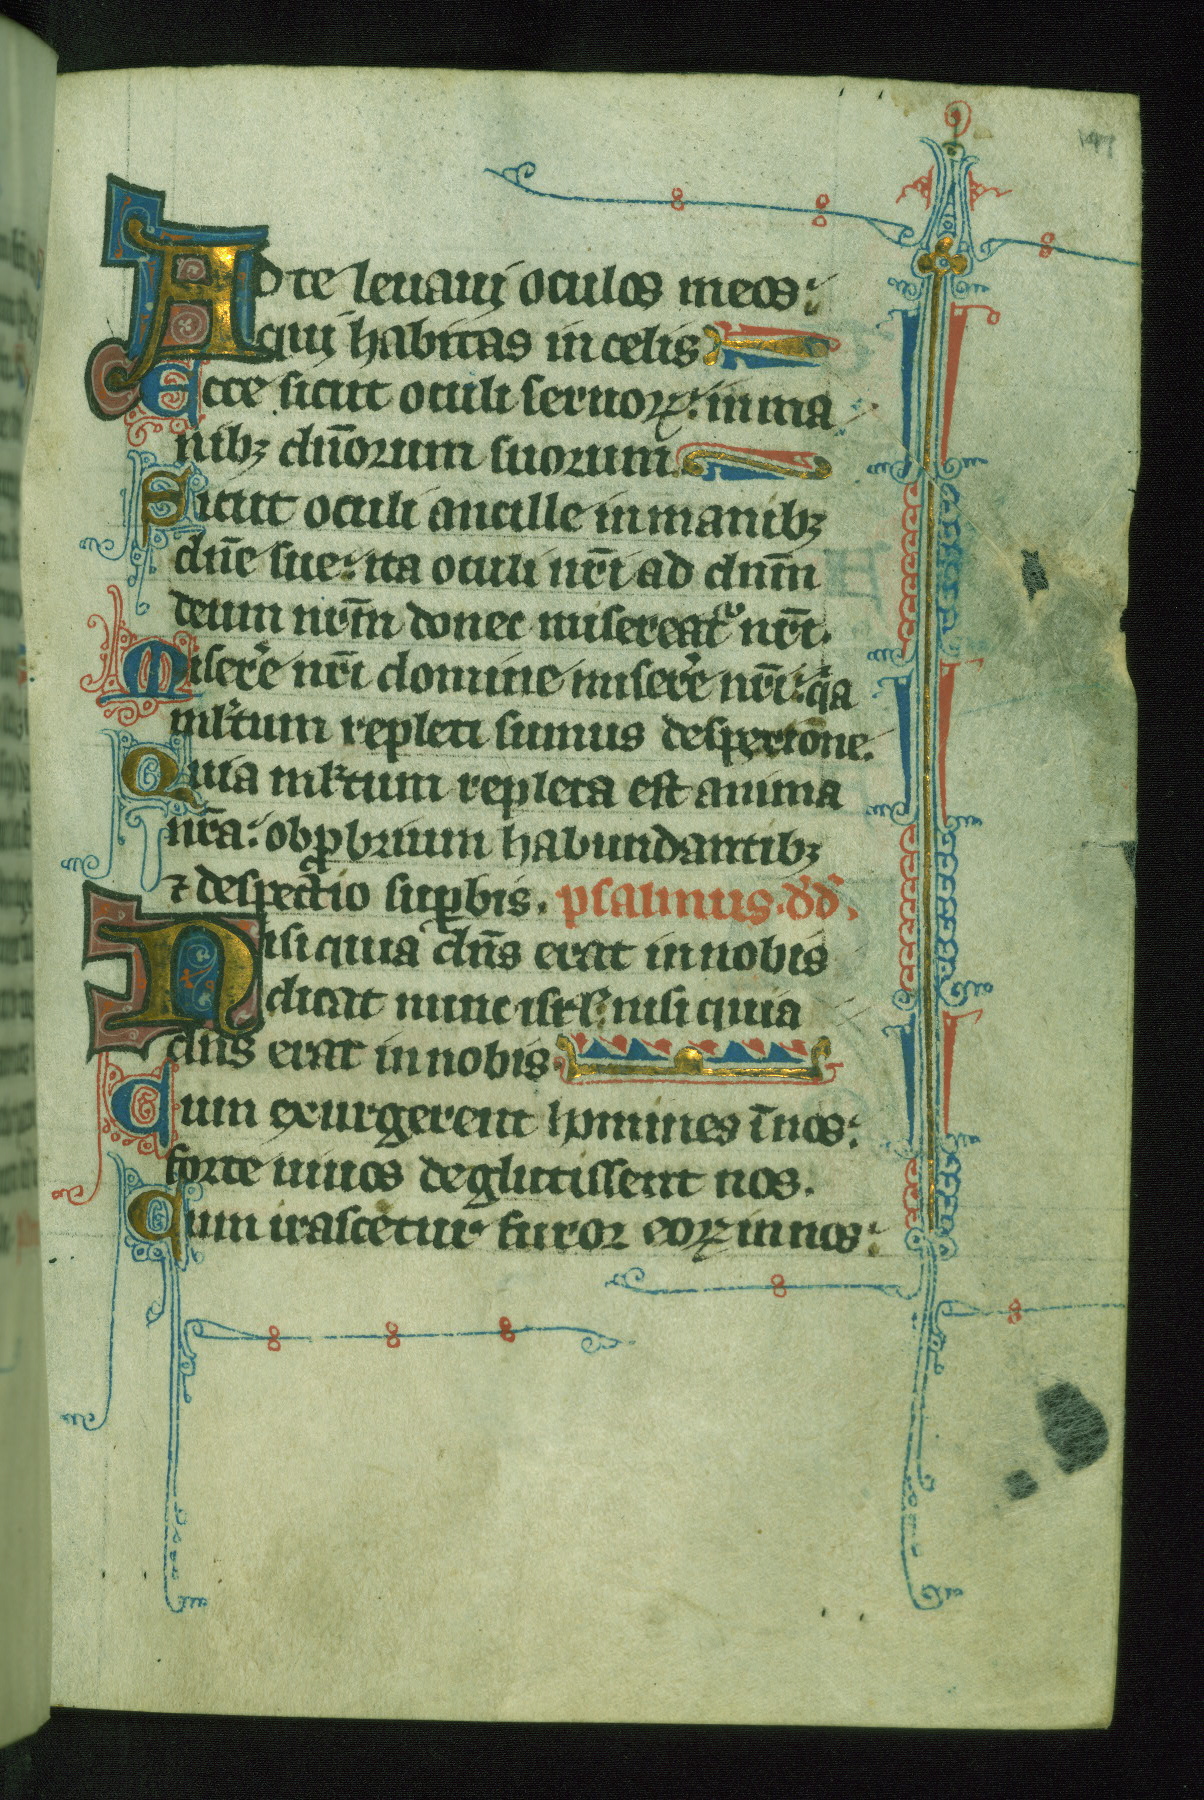 Ad te leuauj oculos meos:
quj habitas in celis
Ecce sicut oculi seruoꝝ: in ma
nibꝫ dn̄orum suorum
Sicut oculi ancille in manibꝫ
dn̄e sue: ita oculi nr̄i ad dnm̄
deum nrm̄ donec misereatᷣ nr̄i.
Miserˀe nr̄i domine miserˀe nr̄i: qͥa
ml̓tum repleti sumus despectiōne.
Quia ml̓tum repleta est anima
nr̄a: obꝓbrium habundantibꝫ
⁊ despectio suꝑbis. psalmus. dd̓.
Nisi quia dn̄s erat in nobis
dicat nunc isrl̓: nisi quia
dn̄s erat in nobis
Cum exurgerent homines ī nos:
forte uiuos deglutissent nos.
Cum irascetur furor eoꝝ in nos: